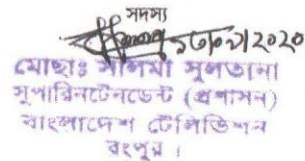 সদস্য
মোছাঃ সালমা সুলতানা
সুপারিনটেনডেন্ট (প্রশাসন)
বাংলাদেশ টেলিভিশন
রংপুর।